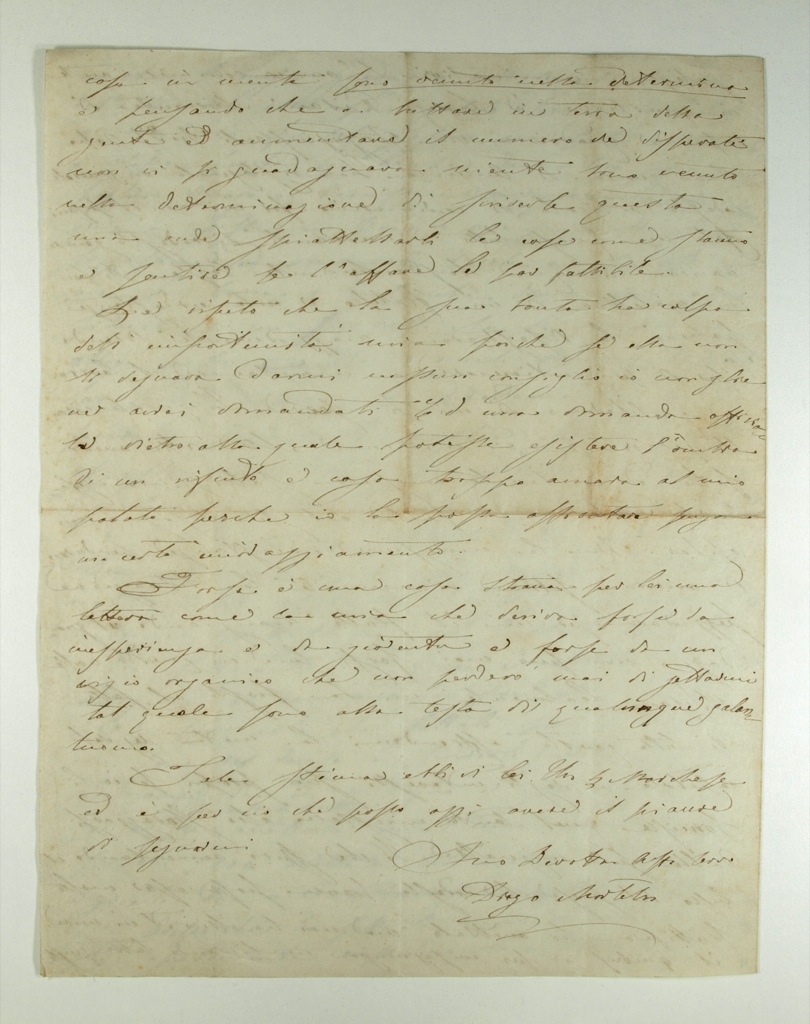 cosa in mente sono venuto nella determina
e pensando che a buttare in terra della
gente ed aumentare il numero de disperati
non ci si guadagnava niente sono venuto
nella determinazione di scriverle questa
mia onde spiattellarle le cose come stanno
e sentire se l'affare le par fattibile.
Le ripeto che la sua bontà ha colpa
dell'importunità mia poiché se ella non
si degnava darmi nessun consiglio io non glie
ne avrei domandati ed una domanda officia
le dietro alla quale potesse esistere l'ombra
di un rifiuto è cosa troppo amara al mio
palato perché io la possa affrontare senza
un certo incoraggiamento.
Forse è una cosa strana per lei una
lettera come la mia che deriva forse da
inesperienza e da gioventù e forse da un
vizio organico che non perderò mai di gettarmi
tal quale sono alla testa di qualunque galan=
tuomo.
Tale stima ebbi di lei Sig. Marchese
ed è per ciò che posso oggi avere il piacere
di segnarmi
Suo Devotmo Affo servo
Diego Martelli